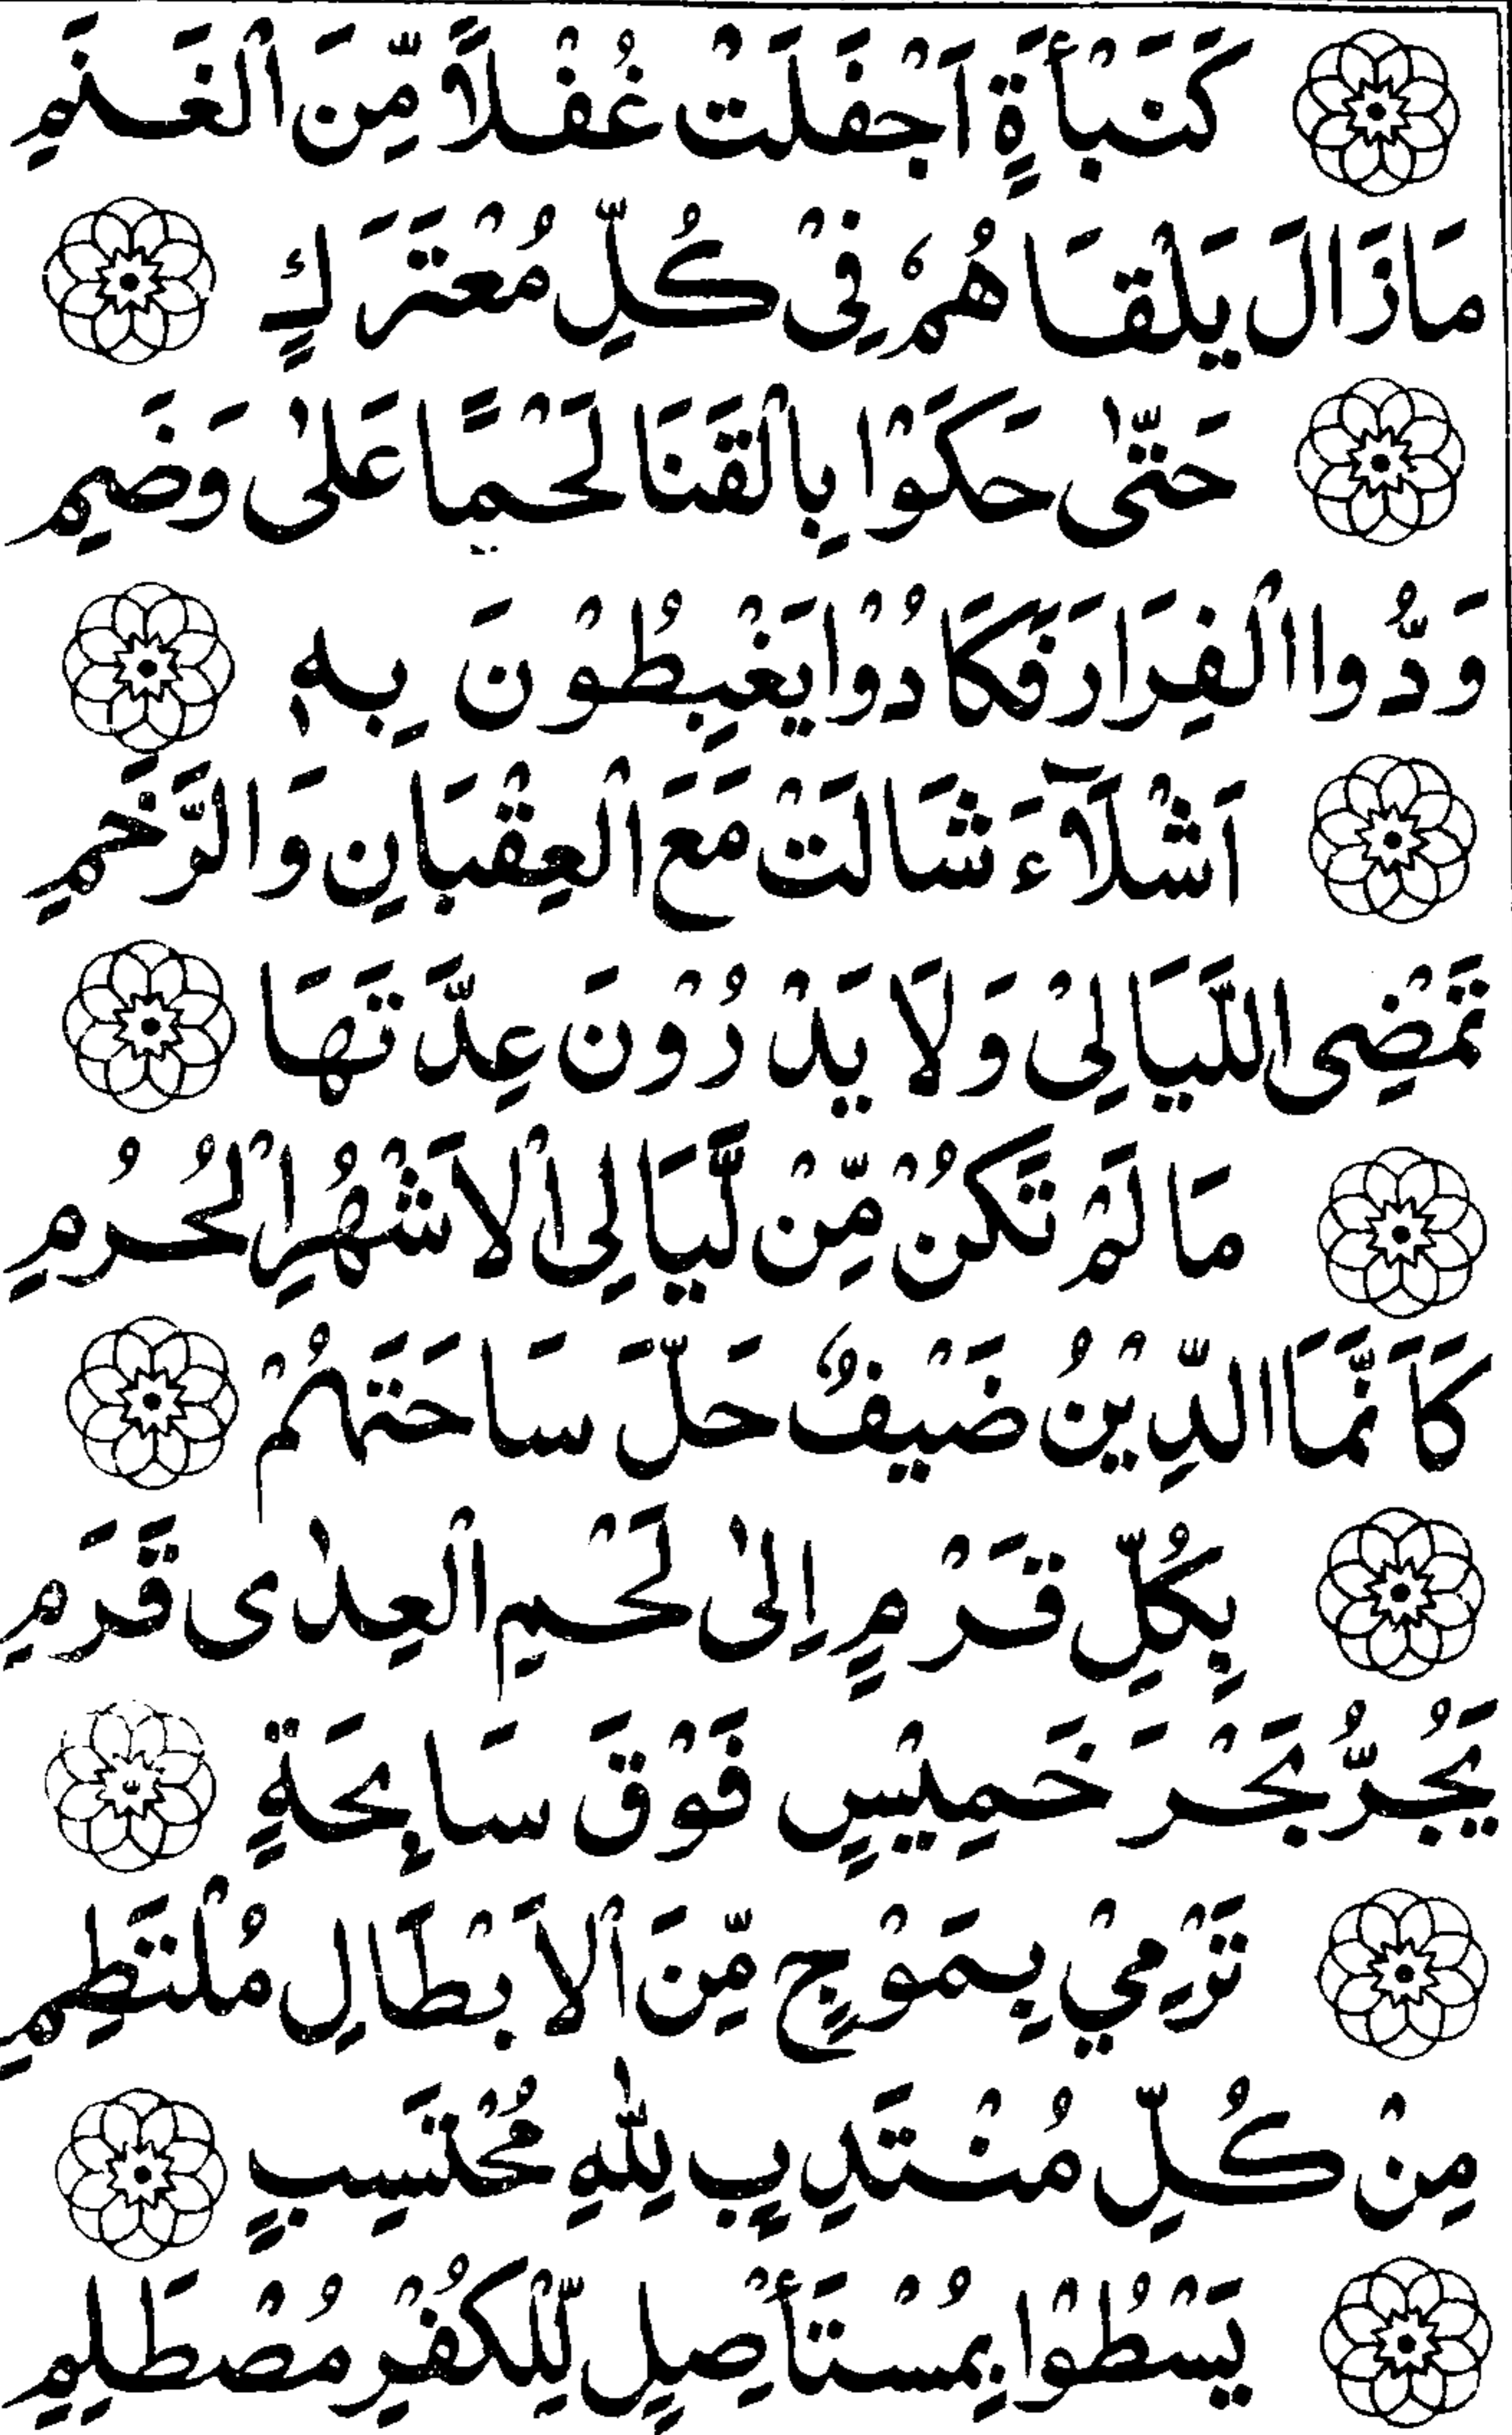 كَنَبْأَةٍ اَجْفَلَتْ غُفْلًا مِّنَ الْغَنَمِ
مَازَالَ يَلْقَاهُمُ فِيْ كُلِّ مُعْتَرَكٍ
حَتّٰى حَكَوْا بِالْقَنَا لَحْمًا عَلٰى وَضَمِ
وَدُّوا الْفِرَارَ فَكَادُوْا يَغْبِطُوْنَ بِهٖ
اَشْلَآءَ شَالَتْ مَعَ الْعِقْبَانِ وَالرَّخَمِ
تَمْضِى اللَّيَالِىْ وَلَا يَدْرُوْنَ عِدَّتَهَا
مَا لَمْ تَكُنْ مِّنْ لَّيَالِى الْاَشْهُرِ الْحُرُمِ
كَاَنَّمَا الدِّيْنُ ضَيْفٌ حَلَّ سَاحَتَهُمْ
بِكُلِّ قَرْمٍ اِلٰى لَحْمِ الْعِدٰى قَرَمِ
يَجُرُّ بَحْرَ خَمِيْسٍ فَوْقَ سَابِحَةٍ
تَرْمِيْ بِمَوْجٍ مِّنَ الْاَبْطَالِ مُلْتَطِمِ
مِنْ كُلِّ مُنْتَدِبٍ لِلّٰهِ مُحْتَسِبٍ
يَسْطُوْا بِمُسْتَأْصِلٍ لِّلْكُفْرِ مُصْطَلِمِ